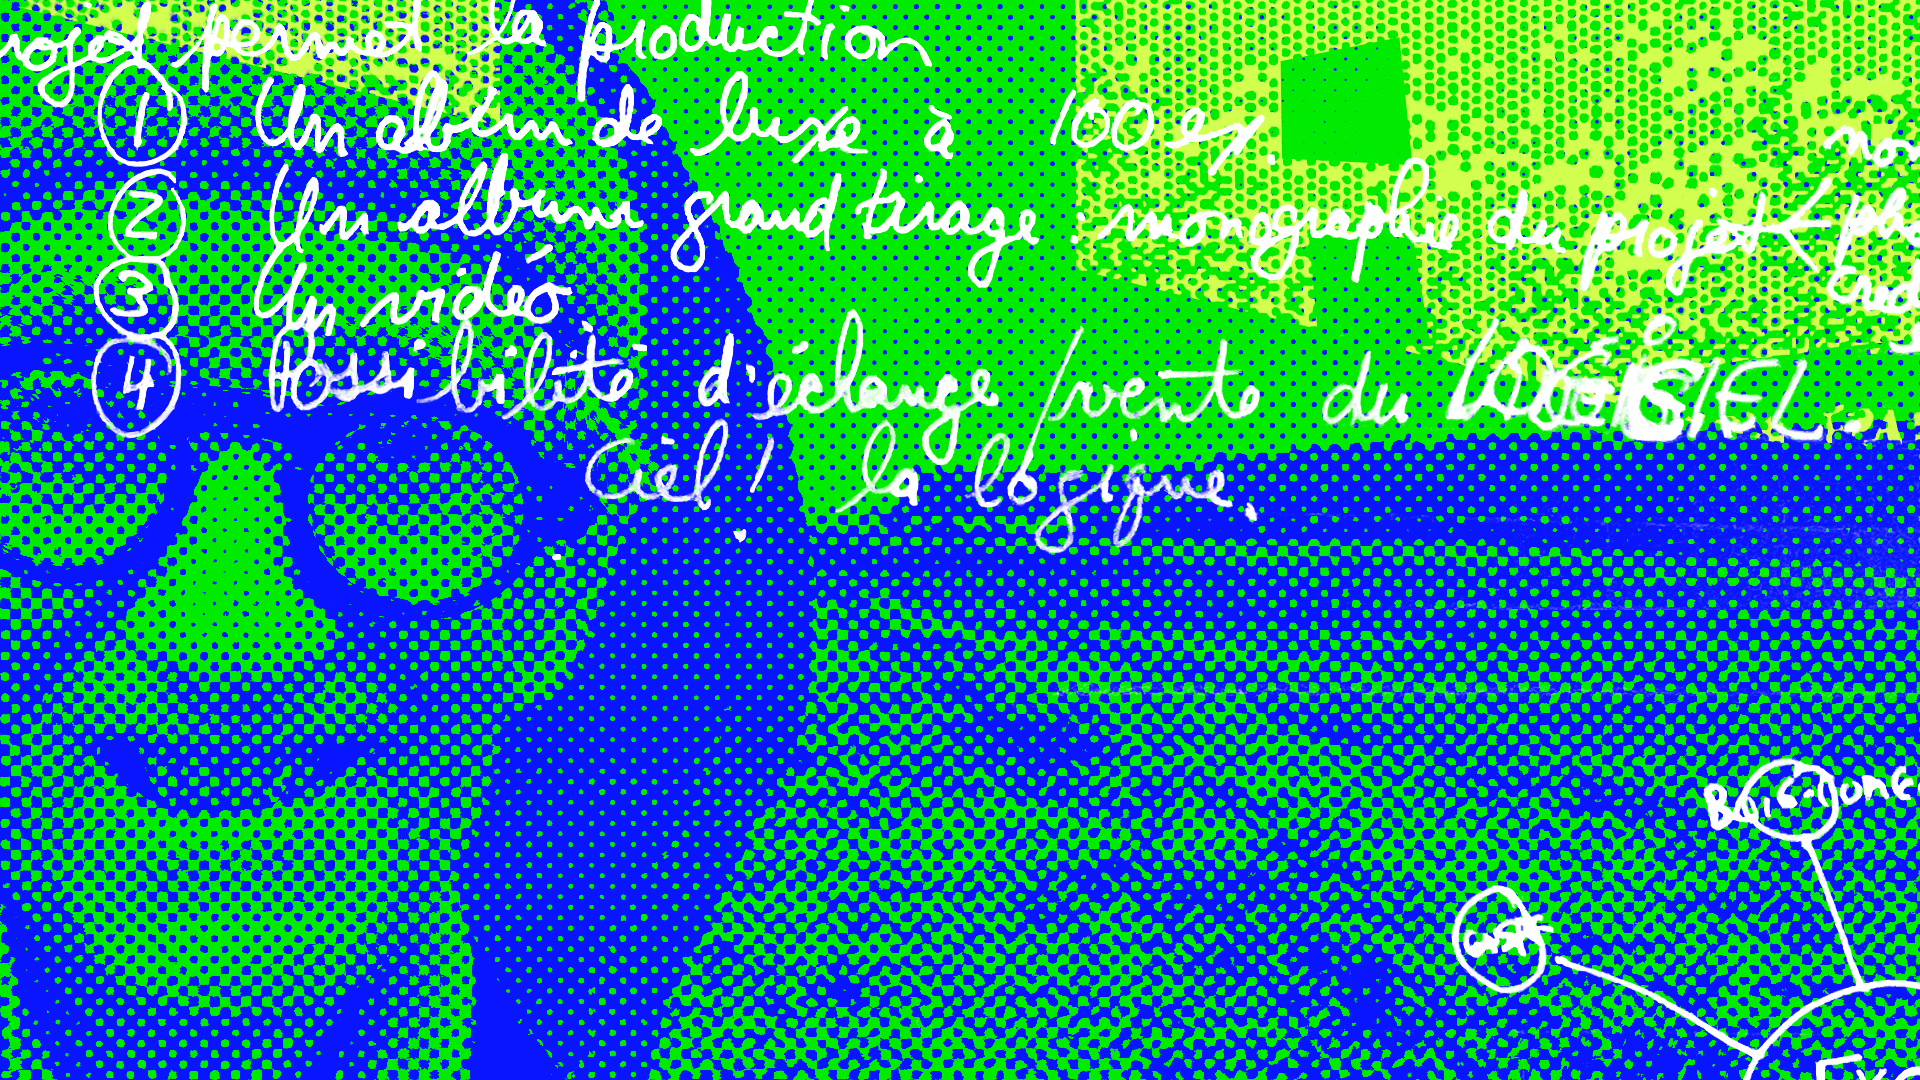 projet permet la production
① Un album de luxe à 100 ex.
② Un album grand tirage : monographie du projet <
③ Un vidéo.
④ Possibilité d'échange / vente du LOGICIEL.
Ciel! la logique.